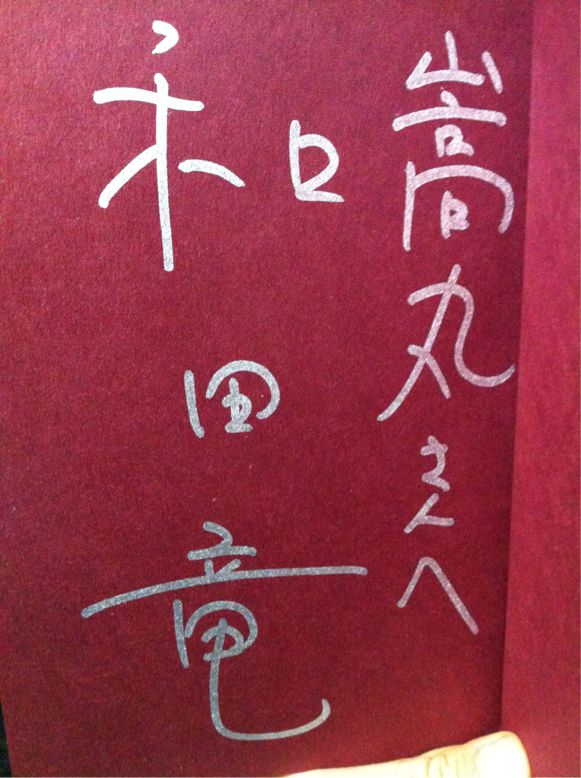 嵩丸さんへ
和田竜